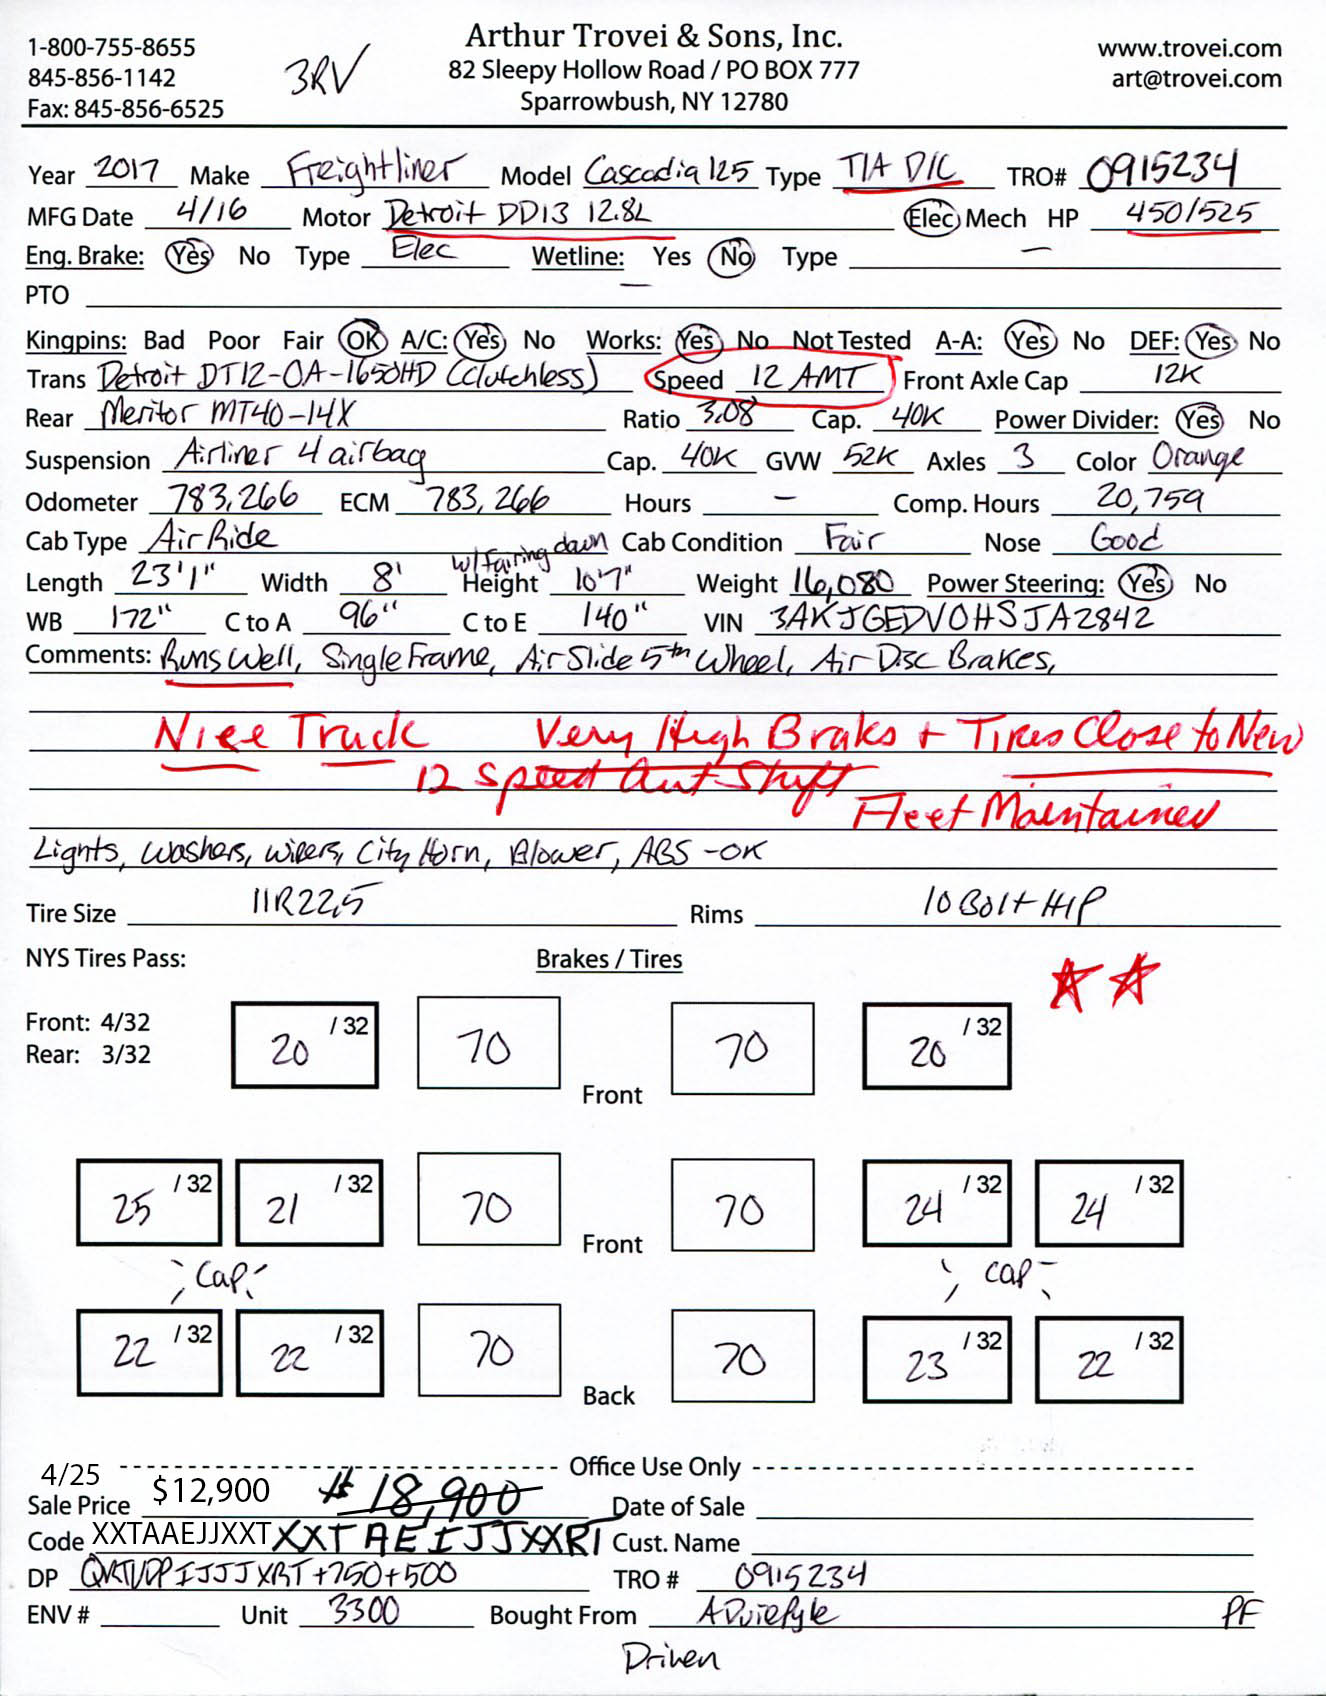 Arthur Trovei & Sons, Inc.
1-800-755-8655 82 Sleepy Hollow Road / PO BOX 777 www.trovei.com
845-856-1142 3RV Sparrowbush, NY 12780 art@trovei.com
Fax: 845-856-6525
Year 2017 Make Freightliner Model Cascadia 125 Type T/A D/C TRO# 0915234
MFG Date 4/16 Motor Detroit DD13 12.8L Elec Mech HP 450/525
Eng. Brake: Yes No Type Elec Wetline: Yes No Type —
PTO —
Kingpins: Bad Poor Fair OK A/C: Yes No Works: Yes No Not Tested A-A: Yes No DEF: Yes No
Trans Detroit DT12-OA-1650HD (Clutchless) Speed 12 AMT Front Axle Cap 12K
Rear Meritor MT40-14X Ratio 3.08 Cap. 40K Power Divider: Yes No
Suspension Airliner 4 airbag Cap. 40K GVW 52K Axles 3 Color Orange
Odometer 783,266 ECM 783,266 Hours — Comp. Hours 20,759
Cab Type Air Ride Cab Condition Fair Nose Good
w/ Fairing down
Length 23'1" Width 8' Height 10'7" Weight 16,080 Power Steering: Yes No
WB 172" C to A 96" C to E 140" VIN 3AKJGEDV0HSJA2842
Comments: Runs Well, Single Frame, Air Slide 5th Wheel, Air Disc Brakes,
Nice Truck Very High Brakes + Tires Close to New
12 Speed Aut Shift
Fleet Maintained
Lights, Washers, Wipers, City Horn, Blower, ABS -OK
Tire Size 11R22.5 Rims 10 Bolt H/P
NYS Tires Pass: Brakes / Tires
Front: 4/32
Rear: 3/32
20 /32 70 Front 70 20 /32
25 /32 21 /32 70 Front 70 24 /32 24 /32
Cap Cap
22 /32 22 /32 70 Back 70 23 /32 22 /32
4/25 Office Use Only
Sale Price $12,900 $18,900 Date of Sale
Code XXTAAEJJXXT XXTAEIJJXXRT Cust. Name
DP QVRTVDPIJJJXRT+750+500 TRO # 0915234
ENV # Unit 3300 Bought From PF
Driven